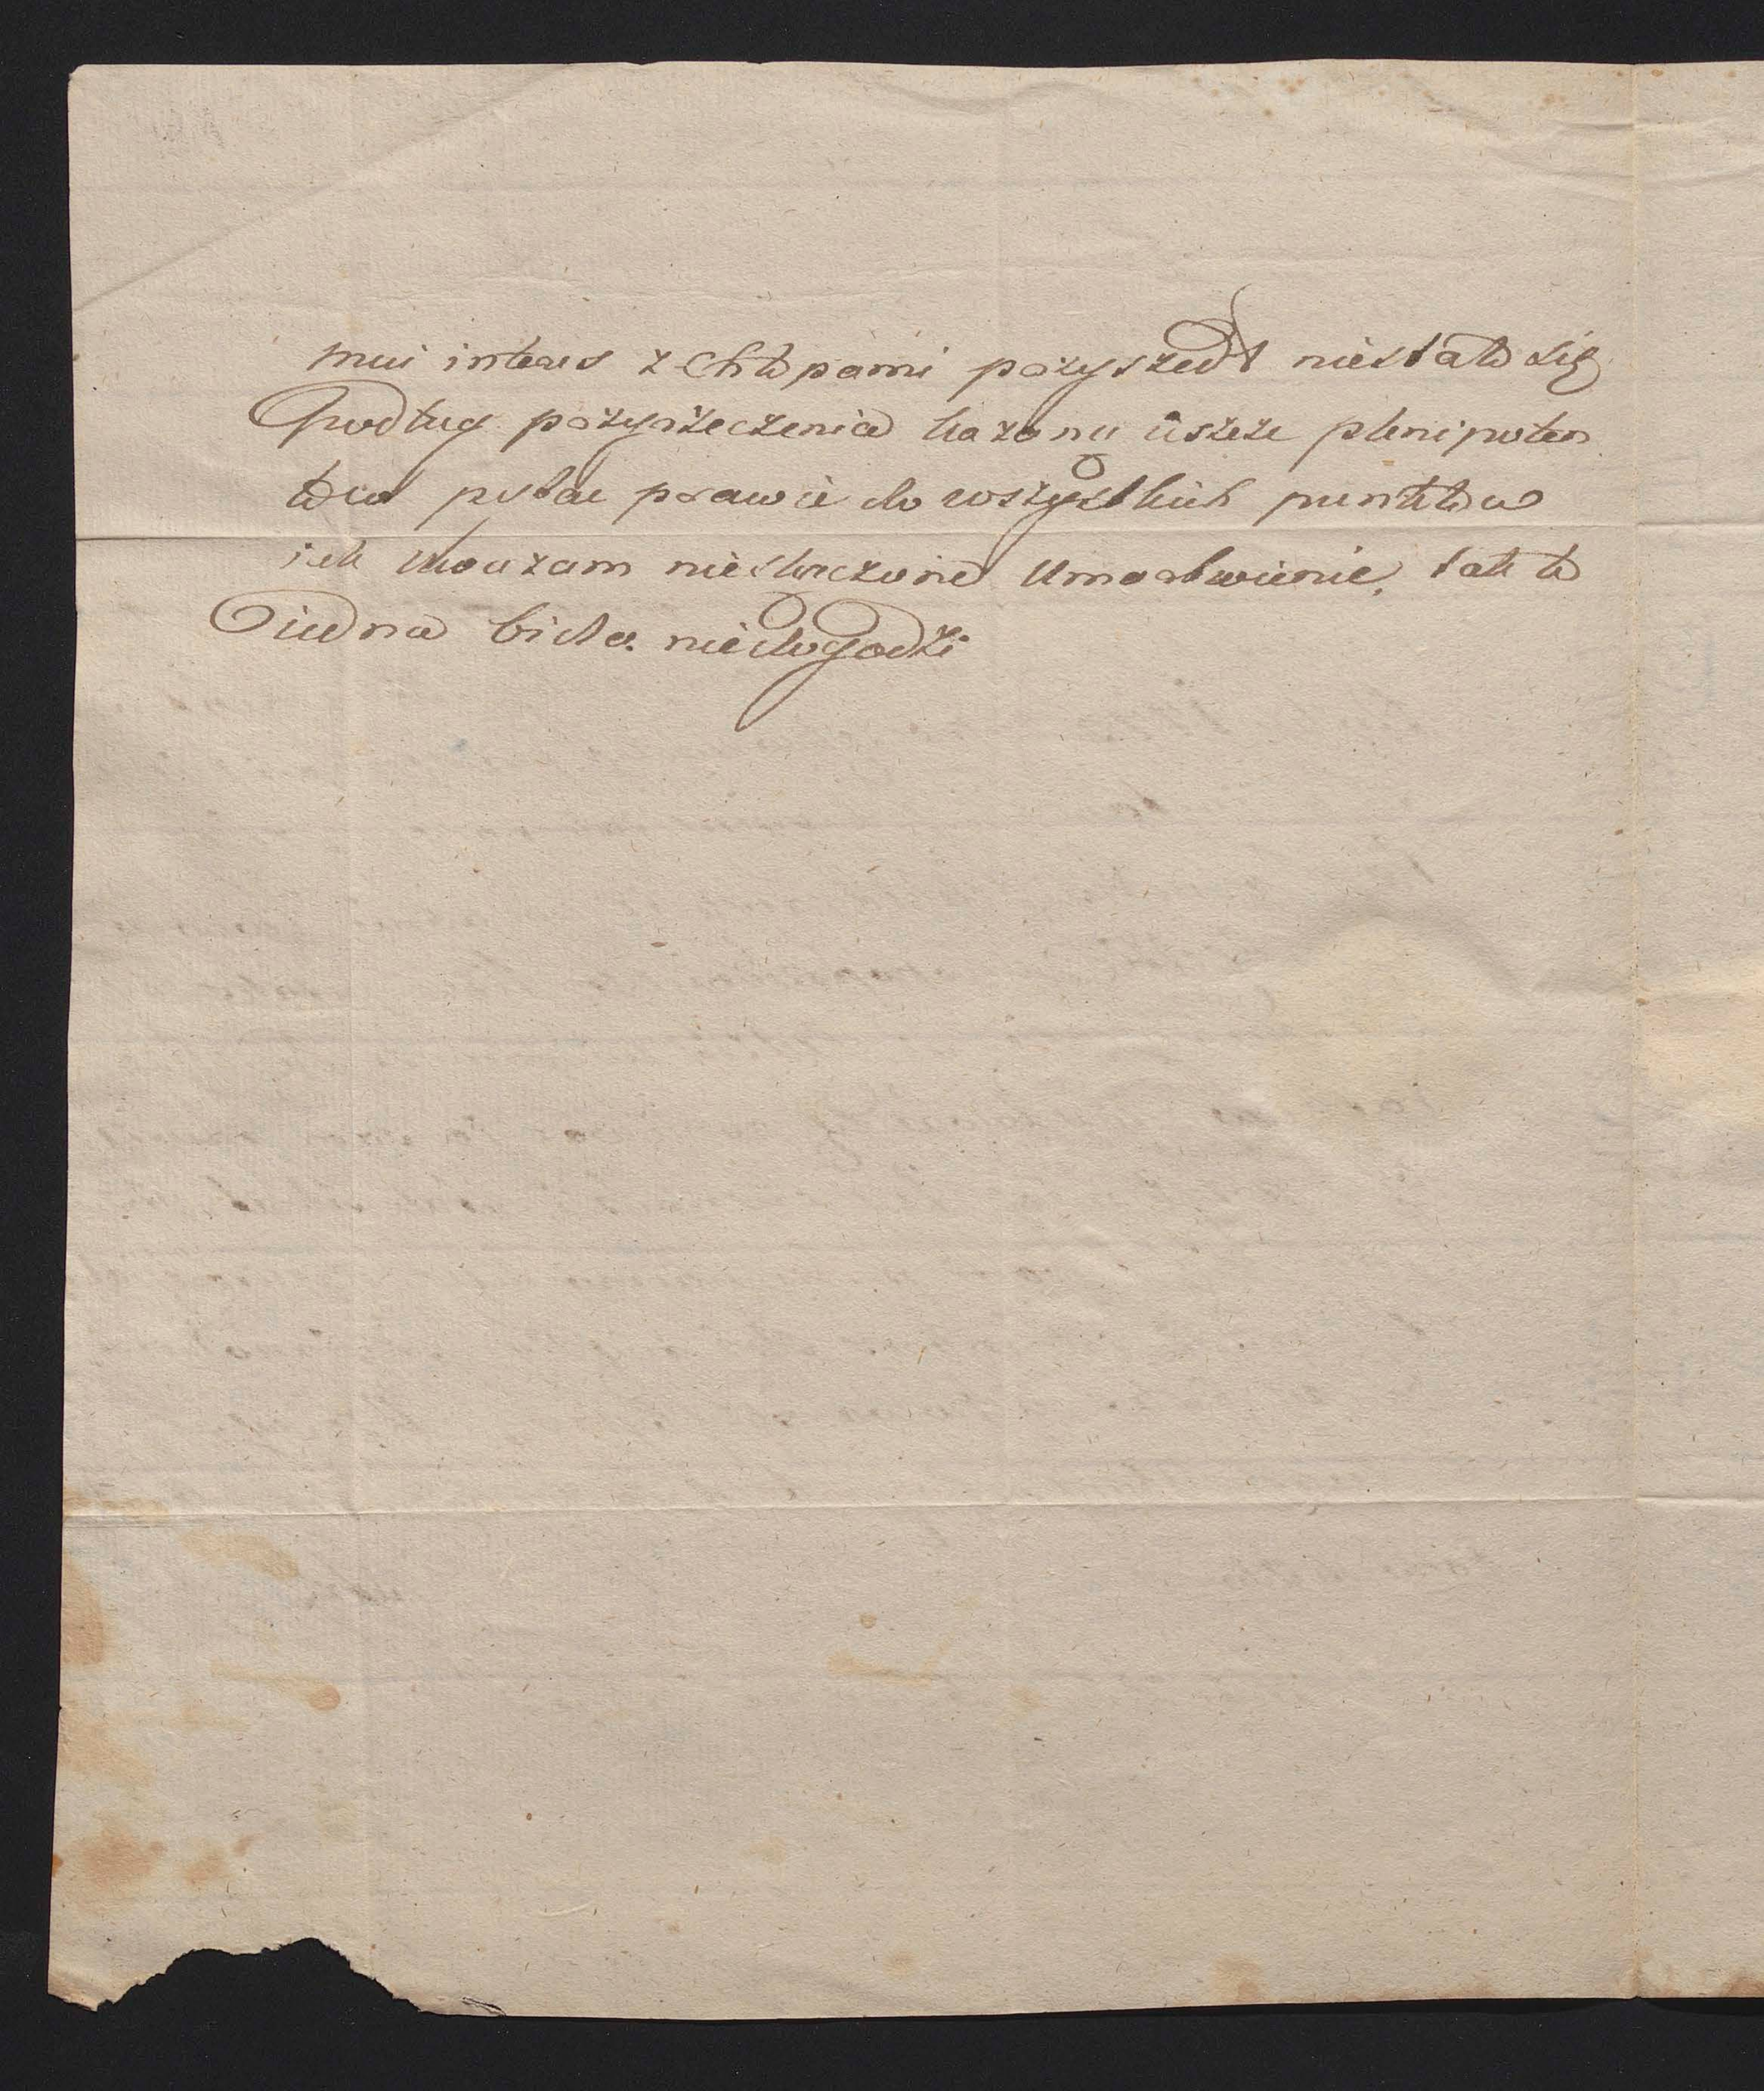 mui interes z Chłopami przyszedł niestało się
Podług przyrzeczenia kazano ieszcze plenipoten
tów pytac prawie do wszystkich punktów
iak uważam nieskączone Umartwienie, tak to
iedna bida niedogodzi